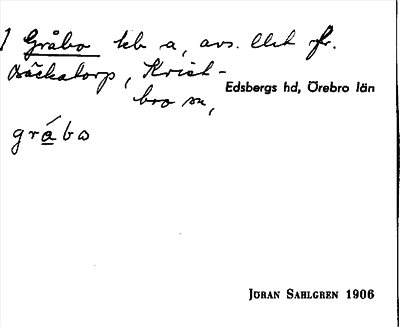 1 Gråbo tkb a, avs. illet fr.
Bäckatorp, Krist-
bro sn, Edsbergs hd, Örebro län
gråbo
JÖRAN SAHLGREN 1906